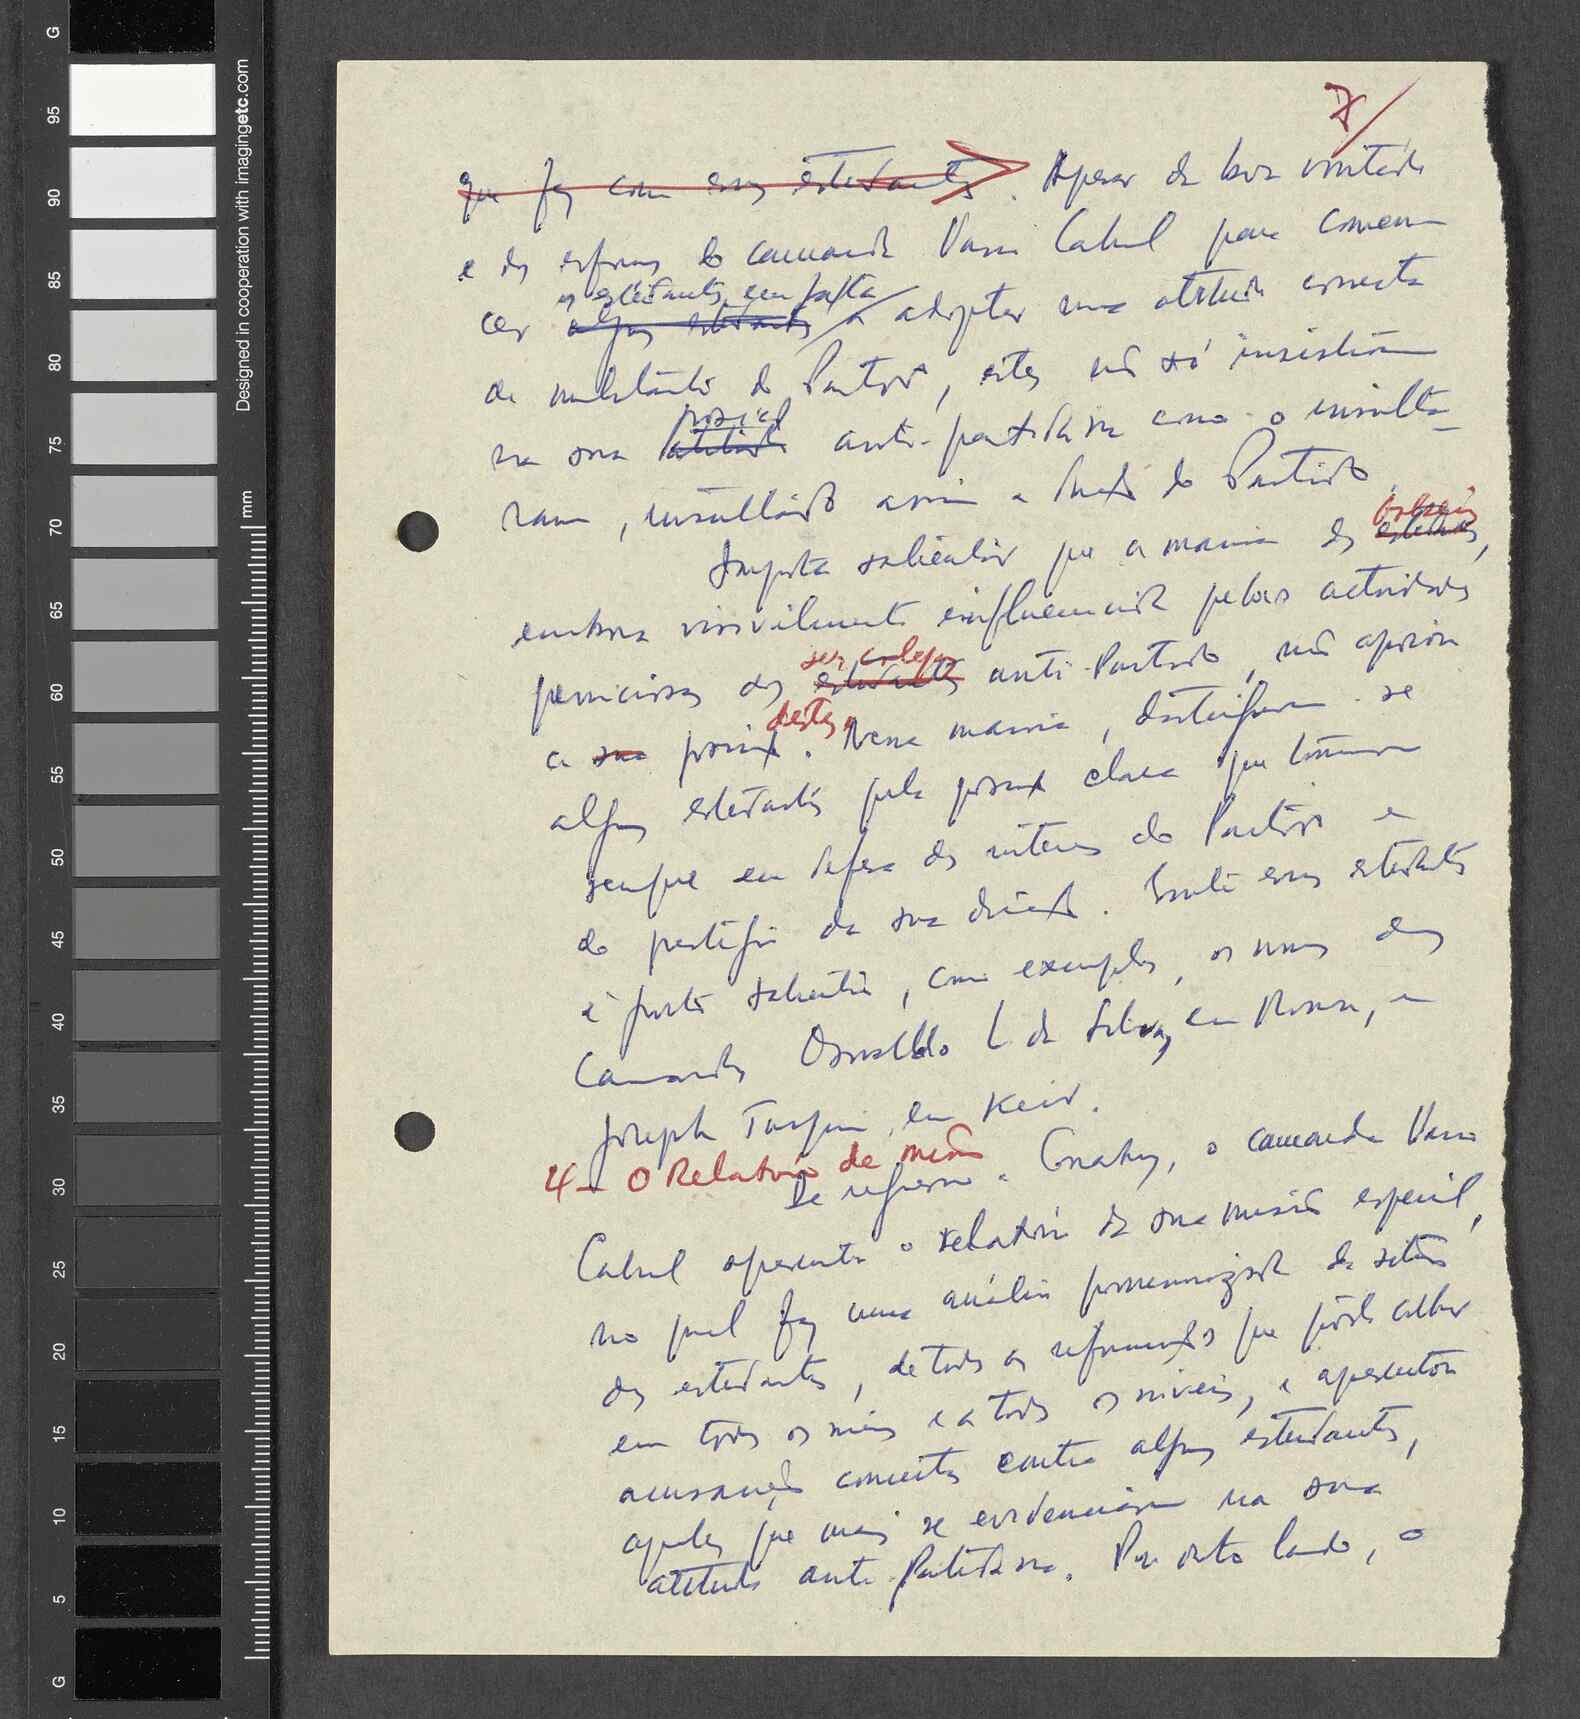 7
que faz com esses estudantes. Apesar da boa vontade
e dos esforços do camarada Vasco Cabral para conven-
os estudantes em falta
cer alguns estudantes a adoptar uma atitude correcta
de militante do Partido, estes não só insistiram
posição
na sua atitude anti-partidária como o insulta-
ram, insultando assim a direcção do Partido.
bolseiros
Importa salientar que a maioria dos estudantes,
embora visivelmente influenciada pelas actividades
seus colegas
perniciosas dos estudantes anti-Partido, não apoiou
destes
a sua posição. Nessa maioria, distinguiram-se
alguns estudantes pela posição clara que tomaram
sempre em defesa dos interesses do Partido e
do prestígio da sua direcção. Entre esses estudantes
é justo salientar, como exemplos, os nomes dos
Camaradas Osvaldo L. da Silva, em Moscovo, e
Joseph Turpin, em Kiev.
4 - O Relatório de missão
De regresso a Conakry, o camarada Vasco
Cabral apresenta o relatório da sua missão especial,
no qual faz uma análise pormenorizada da situação
dos estudantes, de todas as informações que pôde colher
em todos os meios e a todos os níveis, e apresentou
acusações concretas contra alguns estudantes,
aqueles que mais se evidenciaram na sua
atitude anti-Partidária. Por outro lado, o
Designed in cooperation with imagingetc.com
mm
G
95
90
85
80
75
70
65
60
55
50
45
40
35
30
25
20
15
10
5
G